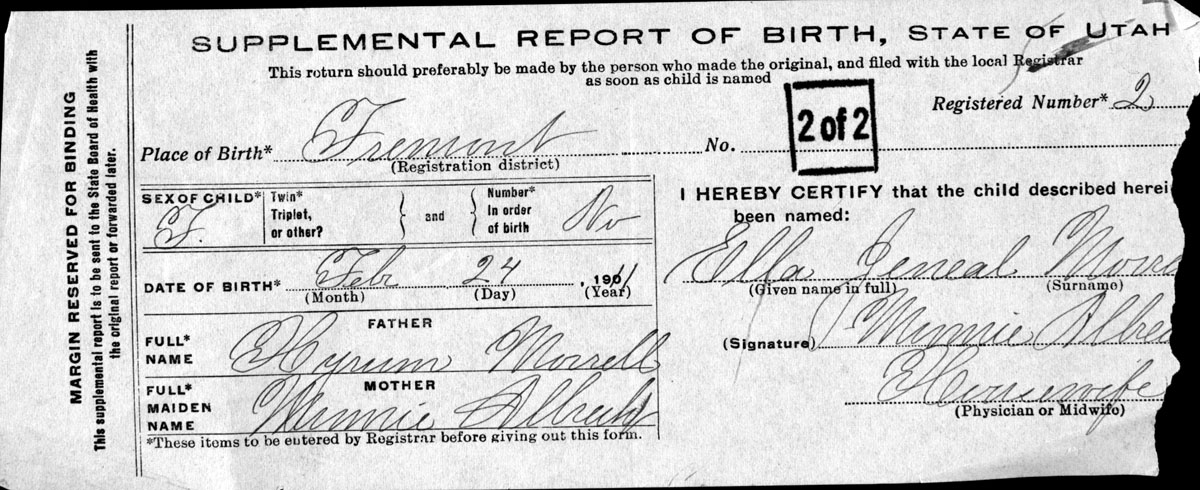 SUPPLEMENTAL REPORT OF BIRTH, STATE OF UTAH
This return should preferably be made by the person who made the original, and filed with the local Registrar
as soon as child is named
MARGIN RESERVED FOR BINDING
This supplemental report is to be sent to the State Board of Health with
the original report or forwarded later.
Registered Number* 2
2 of 2
Place of Birth* Fremont No.
(Registration district)
SEX OF CHILD* F.
Twin*
Triplet,
or other?
and
Number*
In order
of birth
No
I HEREBY CERTIFY that the child described herei
been named:
Ella Jeneal Morre
(Given name in full) (Surname)
DATE OF BIRTH* Feb 24, 1911
(Month) (Day) (Year)
FATHER
FULL*
NAME
Hyrum Morrell
(Signature) Minnie Albre
MOTHER
FULL*
MAIDEN
NAME
Minnie Albrecht
Housewife
(Physician or Midwife)
*These items to be entered by Registrar before giving out this form.